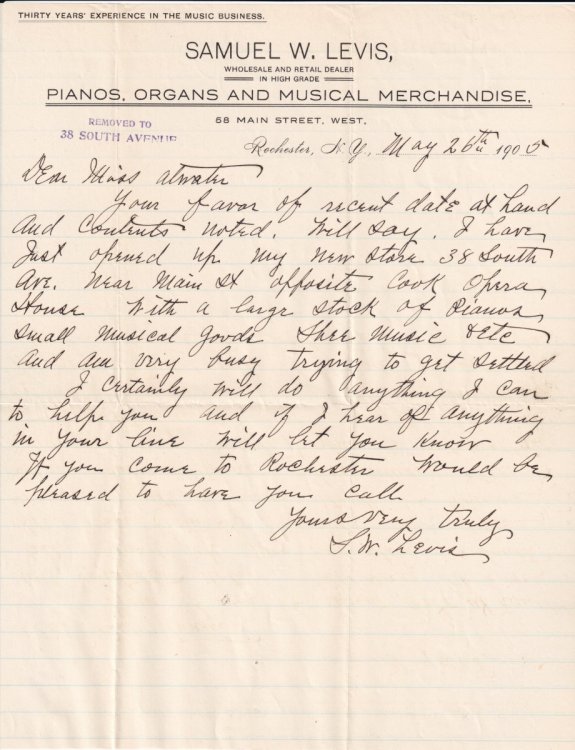 THIRTY YEARS' EXPERIENCE IN THE MUSIC BUSINESS.
SAMUEL W. LEVIS,
WHOLESALE AND RETAIL DEALER
IN HIGH GRADE
PIANOS, ORGANS AND MUSICAL MERCHANDISE,
68 MAIN STREET, WEST.
REMOVED TO
38 SOUTH AVENUE
Rochester, N.Y., May 26th 1905
Dear Miss Atwater
Your favor of recent date at hand
and contents noted. Will say. I have
Just opened up my new store 38 South
Ave. Near Main St opposite Cook Opera
House With a large stock of Pianos
Small musical goods Shee Music &Etc
and am very busy trying to get settled
I certainly will do anything I can
to help you and if I hear of anything
in your line will let you know
If you come to Rochester would be
pleased to have you call
Yours very truly
S. W. Levis